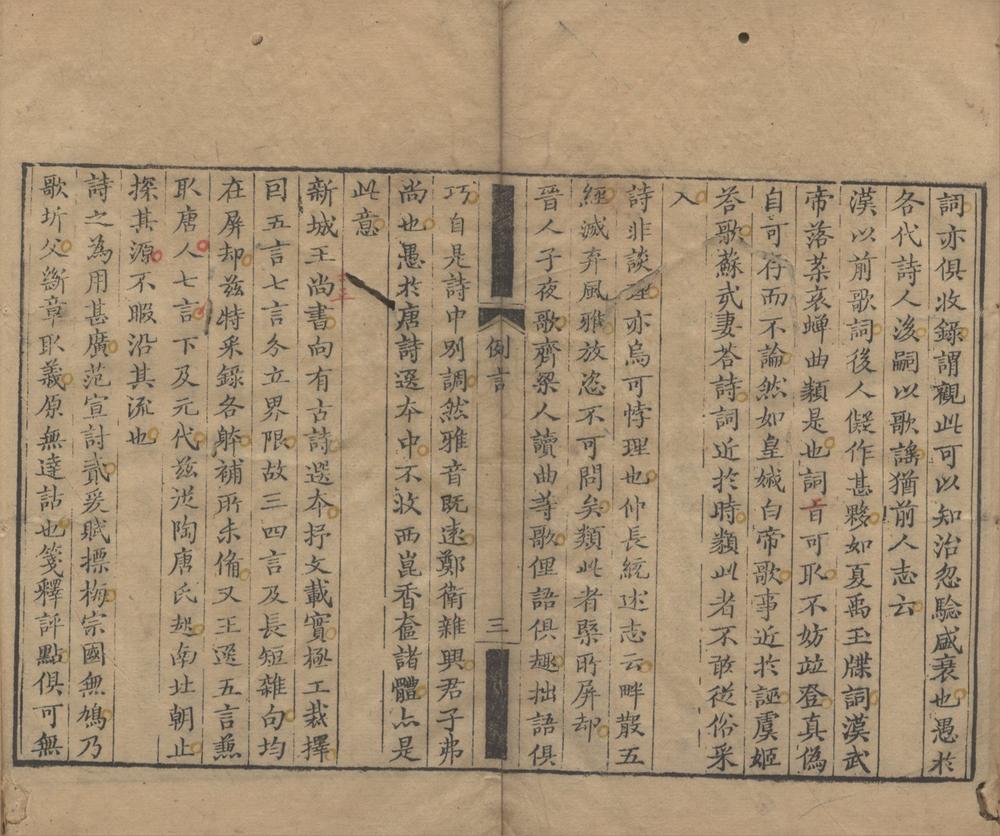 詞亦俱收錄謂觀此可以知治忽驗盛衰也愚於
各代詩人後嗣以歌謠猶前人志云
漢以前歌詞後人儗作甚夥如夏禹玉牒詞漢武
帝落葉哀蟬曲類是也詞旨可取不妨竝登真偽
自可存而不論然如皇娥白帝歌事近於誣虞姬
荅歌蘇武妻荅詩詞近於時類此者不敢從俗采
入
詩非談理亦烏可悖理也仲長統述志云畔散五
經滅弃風雅放恣不可問矣類此者槩所屏却
晉人子夜歌齊梁人讀曲等歌俚語俱趣拙語俱
例言
三
巧自是詩中別調然雅音既遠鄭衛雜興君子弗
尚也愚於唐詩選本中不收西崑香奩諸體亦是
此意
新城王尚書向有古詩選本抒文載實極工裁擇
囙五言七言分立界限故三四言及長短雜句均
在屏却茲特采錄各體補所未備又王選五言兼
取唐人七言下及元代茲從陶唐氏起南北朝止
探其源不暇沿其流也
詩之為用甚廣范宣討貳爰賦摽梅宗國無鳩乃
歌圻父斷章取義原無達詁也箋釋評點俱可無